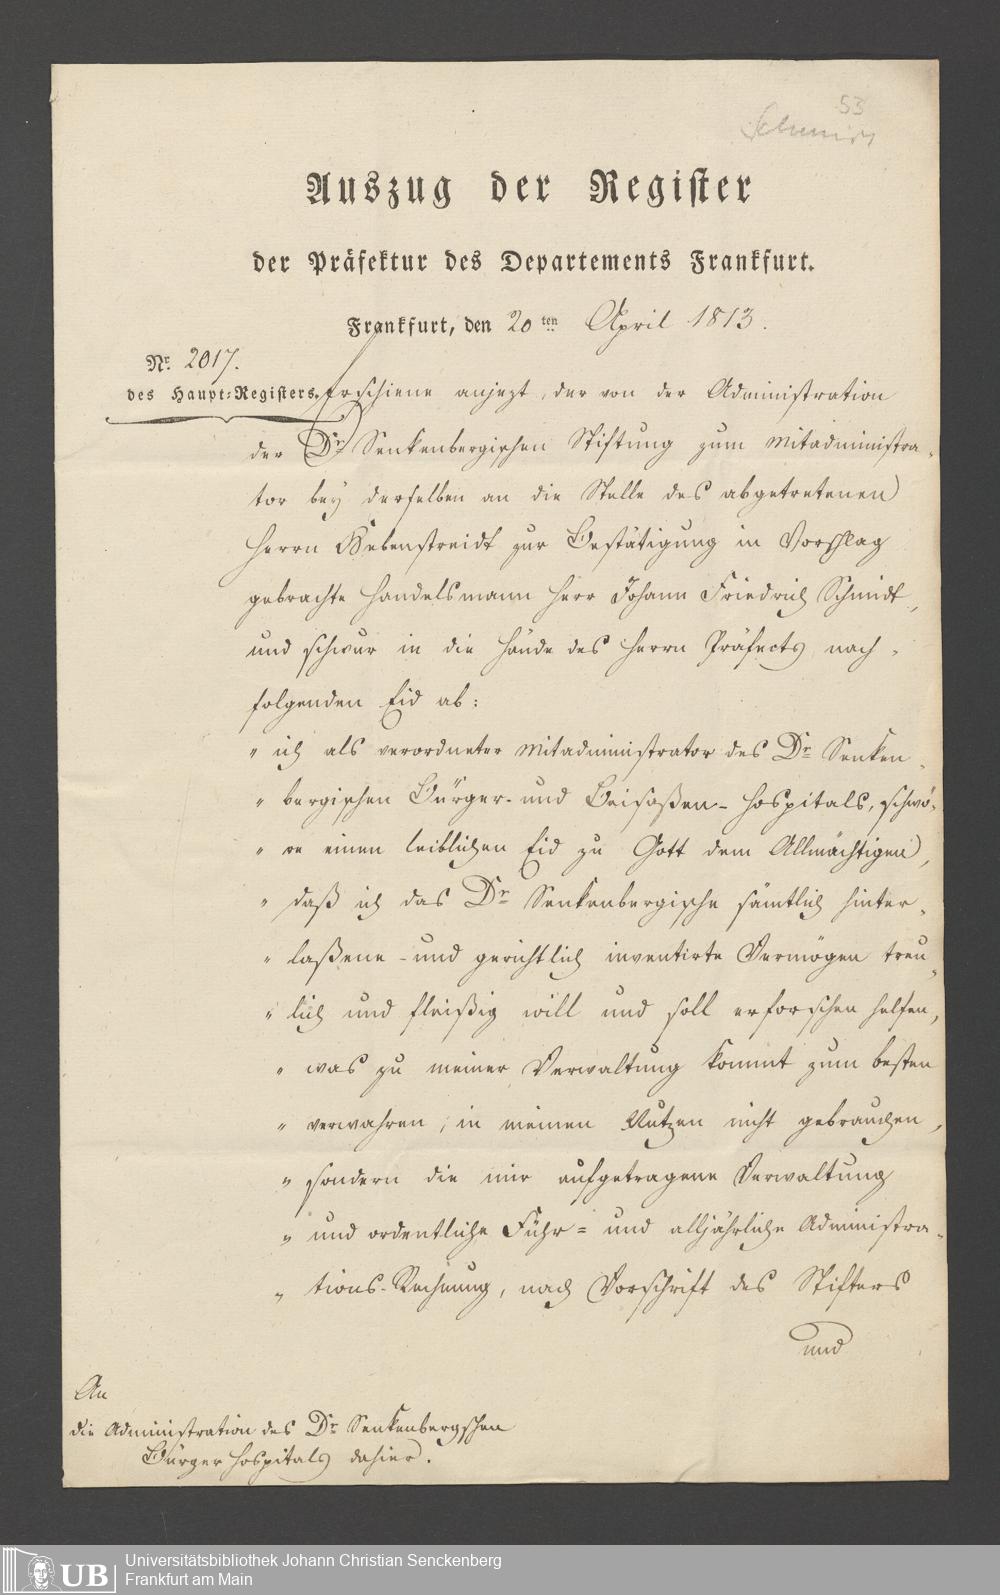 53
Schmidt
Auszug der Register
der Präfektur des Departements Frankfurt.
Frankfurt, den 20ten April 1813.
Nr. 2017.
des Haupt-Registers.
Erschiene anjezt, der von der Administration
der Dr Senkenbergischen Stiftung zum Mitadministra-
tor bey derselben an die Stelle des abgetretenen
Herrn Hebenstreidt zur Bestätigung in Vorschlag
gebrachte Handelsmann Herr Johann Friedrich Schmidt,
und schwur in die Hände des Herrn Präfects nach-
folgenden Eid ab:
" ich als verordneter Mitadministrator des Dr Senken-
" bergischen Bürger- und Beisaßen-Hospitals, schwö-
" re einen leiblichen Eid zu Gott dem Allmächtigen,
" daß ich das Dr Senkenbergische sämtlich hinter-
" laßene- und gerichtlich inventirte Vermögen treu-
" lich und fleißig will und soll erforschen helfen,
" was zu meiner Verwaltung kommt zum besten
" verwahren, in meinen Nutzen nicht gebrauchen,
" sondern die mir aufgetragene Verwaltung
" und ordentliche Führ- und alljährliche Administra-
" tions-Rechnung, nach Vorschrift des Stifters
und
An
die Administration des Dr Senkenbergschen
Bürger Hospitals dahier.
UB
Universitätsbibliothek Johann Christian Senckenberg
Frankfurt am Main